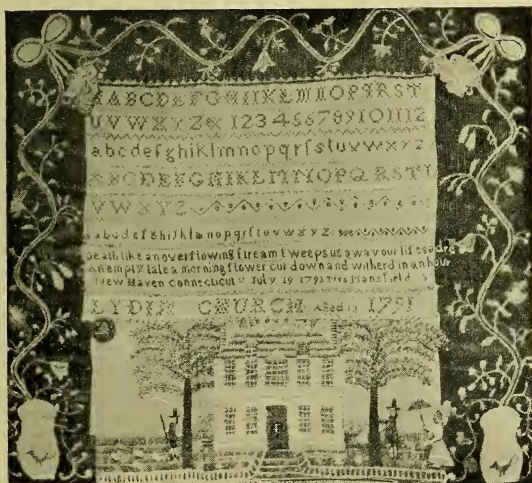 A B C D E F G H I K L M N O P Q R S T
U V W X Y Z & 1 2 3 4 5 6 7 8 9 10 11 12
a b c d e f g h i k l m n o p q r ſ s t u v w x y z
A B C D E F G H I K L M N O P Q R S T U
V W X Y Z
a b c d e f g h i k l m n o p q r ſ t u v w x y z
Death like an overflowing ſtream ſweeps us away our life's a dre
An empty tale a morning flower cut down and witherd in an hour
New Haven connecticut July 19 1791 Mansfield
LYDIA CHURCH Aged 13 1791